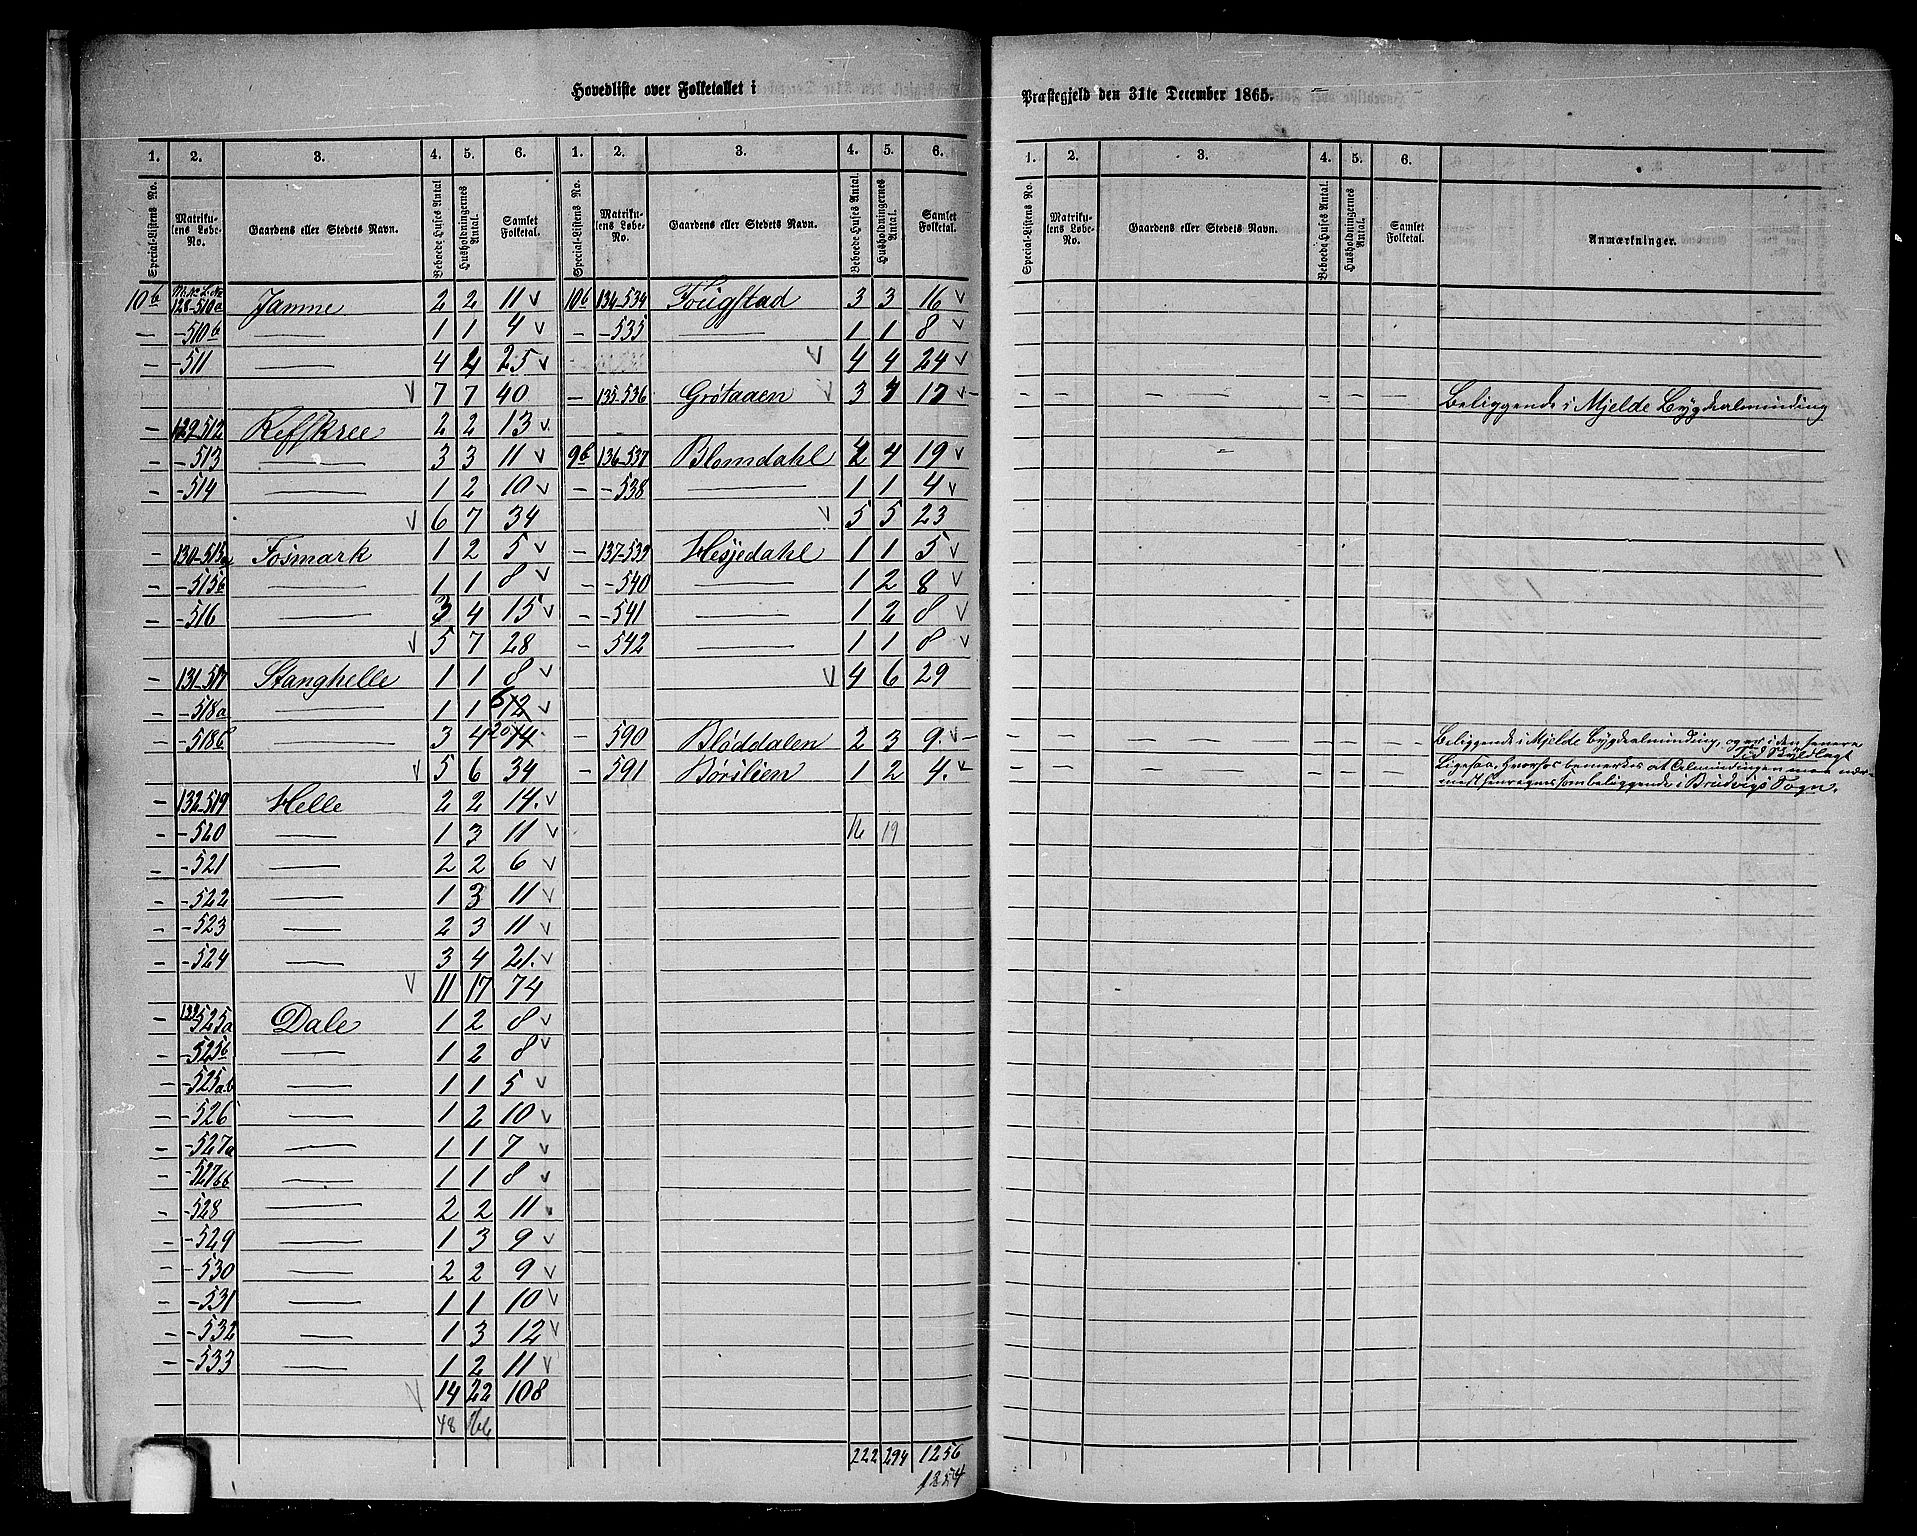 Hovedliste over Folketallet i
Præstegjeld den 31te December 1865.
1. 2. 3. 4. 5. 6. 1. 2. 3. 4. 5. 6.
1. 2. 3. 4. 5. 6.
Special-Listens No. Matrikulens Løbe-No. Gaardens eller Stedets Navn. Beboede Huses Antal Husholdningernes Antal. Samlet Folketal. Special-Listens No. Matrikulens Løbe-No. Gaardens eller Stedets Navn. Beboede Huses Antal. Husholdningernes Antal. Samlet Folketal.
Special-Listens No. Matrikulens Løbe-No. Gaardens eller Stedets Navn. Beboede Huses Antal. Husholdningernes Antal. Samlet Folketal. Anmærkninger.
10b M.No L.No 128-510a Jamne 2 2 11 v
— -510b — 1 1 4 v
— -511 — 4 4 25 v
v 7 7 40
129-512 Reffkree 2 2 13 v
— -513 — 3 3 11 v
— -514 — 1 2 10 v
v 6 7 34
— 130-515a Fosmark 1 2 5 v
— -515b — 1 1 8 v
— -516 — 3 4 15 v
v 5 7 28
— 131-517 Stanghelle 1 1 8 v
— -518a — 1 1 6 12 v
— -518b — 3 4 20 14
v 5 6 34
— 132-519 Helle 2 2 14. v
— -520 — 1 3 11 v
— -521 — 2 2 6 v
— -522 — 1 3 11 v
— -523 — 2 3 11 v
— -524 — 3 4 21. v
v 11 17 74
— 133 525a Dale 1 2 8 v
— -525b — 1 2 8 v
— -525ab — 1 1 5 v
— -526 — 1 2 10 v
— -527a — 1 1 7 v
— -527bb — 1 1 8 v
— -528 — 2 2 11 v
— -529 — 1 3 9 v
— -530 — 2 2 9 v
— -531 — 1 1 10 v
— -532 — 1 3 12 v
— -533 — 1 2 11 v
v 14 22 108
48 66
10b 134-534 Fougstad 3 3 16 v
— -535 — 1 1 8 v
v 4 4 24 v
— 135-536 Grøtaaen v 3 3 17 v — — — — — — — Beliggende i Mjelde Bygdealminding
9b 136-537 Blomdahl 4 4 19 v
— -538 — 1 1 4 v
v 5 5 23
— 137-539 Hesjedahl 1 1 5 v
— -540 — 1 2 8 v
— -541 — 1 2 8 v
— -542 — 1 1 8 v
v 4 6 29
— -590 Bløddalen 2 3 9. v — — — — — — — Beliggende i Mjelde Bygdealminding, og er i den senere Tid Skyldlagt
— -591 Børslien 1 2 4. v — — — — — — Ligesaa, hvorhos bemerkes at Almindingen maa nær-
mest henregnes som beliggende i Bruvigs Sogn.
16 19
222 294 1256
1254